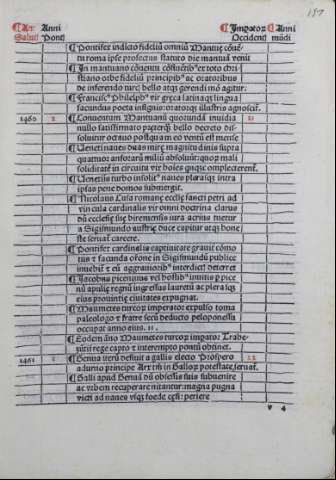 157
Anni Anni
Salut Pont
Impator Anni
Occident mūdi
¶ Pontifex indicto fideliū omniū Mantuę cōuē
tu roma ipse profectus statuto die mantuā venit
¶ In mantuano cōuentu
stiano orbe fideliū principibus ac oratoribus
de inferendo turcis bello atqs gerendi mō agitur:
¶ Franciscus Philelphus vir gręca latinaqs lingua
facundus poeta insignis: oratorqs illustris agnoscit.
1460 2 ¶ Conuentum Mantuanū quorundā inuidia 21
nullo satisfirmato pręterqs bello decreto dis-
soluitur octauo postquam eo ventū est mense
¶ Veneti naues duas mirę magnitudinis supra
quatuor anforarū miliū absoluūt: quos mali
soliditate in circuitu vix boues quinqs complecterent.
¶ Venetiis turbo insolitus naues plerasqs intra
ipsas pene domos submergit.
¶ Nicolaus Cusa romanę ecclę sancti petri ad
vincula cardinalis vir omni doctrina clarus
dū ecclesię suę bremensis iura acrius metur
a Sigismundo austrię duce capitur atqs hone
ste seruat carcere.
¶ Pontifex cardinalis captiuitate grauit cōmo
tus et facunda orōne in Sigismundū publice
inuehit et eū aggrauatibus interdict deterret
¶ Jacobus picenninus vel hostibus inuitis p pice
nū apulię regnū ingressus laureti ac plerasqs
eius prouintię ciuitates expugnat.
¶ Maumetes turcoꝝ imperator expulso toma
paleologo et fratre seruū deducto peloponessū
occupat anno eius. 11.
¶ Eodem āno Maumetes turcoꝝ impator Trabe
zūtii rege capto et interempto pontū obtinet.
1461 3 ¶ Genua verū desinit a gallis electo Prospero 22
adurno principe Arx tn̄ in Gallorū potestate seruat.
¶ Galli apud Genuā dū obsessis suis subuenire
ac vrbem recuperare nitantur: magna pugna
victi ad naues vsqs fœde cęsi: periere
v 4